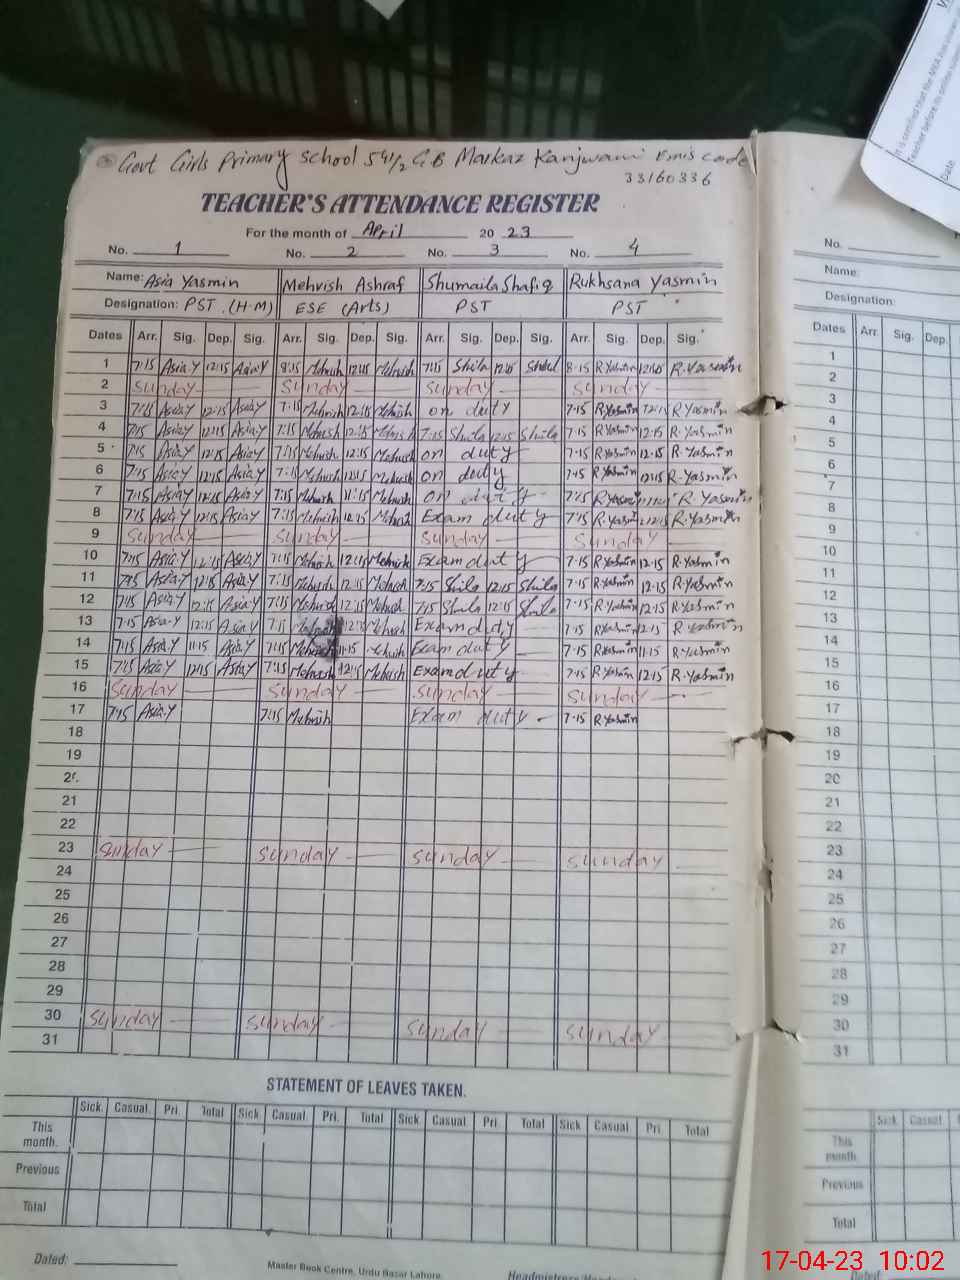 Govt Girls Primary School 541/2 G.B Markaz Kanjwani Emis code
33160336
TEACHER'S ATTENDANCE REGISTER
For the month of April 2023
No. 1 No. 2 No. 3 No. 4
Name: Asia Yasmin Mehvish Ashraf Shumaila Shafiq Rukhsana Yasmin
Designation: PST (H.M) ESE (Arts) PST PST
Dates Arr. Sig. Dep. Sig. Arr. Sig. Dep. Sig. Arr. Sig. Dep. Sig. Arr. Sig. Dep. Sig.
1 7:15 Asia.Y 12:15 Asia.Y Mehvish Mehvish Shila 8-15 R.Yasmin R.Yasmin
2 Sunday Sunday Sunday Sunday
3 7:15 Asia.Y 12:15 Asia.Y 7:15 Mehvish 12:15 Mehvish on duty 7-15 R.Yasmin 12:15 R.Yasmin
4 7:15 Asia.Y 12:15 Asia.Y 7:15 Mehvish 12:15 Mehvish 7:15 Shila 12:15 Shila 7-15 R.Yasmin 12-15 R-Yasmin
5 7:15 Asia.Y 12:15 Asia.Y 7:15 Mehvish 12:15 Mehvish on duty 7-15 R.Yasmin 12-15 R-Yasmin
6 7:15 Asia.Y 12:15 Asia.Y 7:15 Mehvish 12:15 Mehvish on duty 7-15 R.Yasmin 12:15 R-Yasmin
7 7:15 Asia.Y 12:15 Asia.Y 7:15 Mehvish 11:15 Mehvish on duty 7-15 R.Yasmin R.Yasmin
8 7:15 Asia.Y 12:15 Asia.Y 7:15 Mehvish 12:15 Mehvish Exam duty 7-15 R.Yasmin 12:15 R.Yasmin
9 Sunday Sunday Sunday Sunday
10 7:15 Asia.Y 12:15 Asia.Y 7:15 Mehvish 12:15 Mehvish Exam duty 7-15 R.Yasmin 12-15 R.Yasmin
11 7:15 Asia.Y 12:15 Asia.Y 7:15 Mehvish 12:15 Mehvish 7:15 Shila 12:15 Shila 7-15 R.Yasmin 12-15 R.Yasmin
12 7:15 Asia.Y 12:15 Asia.Y 7:15 Mehvish 12:15 Mehvish 7:15 Shila 12:15 Shila 7-15 R.Yasmin 12-15 R.Yasmin
13 7:15 Asia.Y 12:15 Asia.Y 7:15 Mehvish 12:15 Mehvish Exam duty 7-15 R.Yasmin 12-15 R.Yasmin
14 7:15 Asia.Y 11:15 Asia.Y 7:15 Mehvish 11:15 Mehvish Exam duty 7-15 R.Yasmin 11-15 R.Yasmin
15 7:15 Asia.Y 12:15 Asia.Y 7:15 Mehvish 12:15 Mehvish Exam duty 7-15 R.Yasmin 12-15 R.Yasmin
16 Sunday Sunday Sunday Sunday
17 7:15 Asia.Y 7:15 Mehvish Exam duty 7-15 R.Yasmin
18
19
20
21
22
23 Sunday Sunday Sunday Sunday
24
25
26
27
28
29
30 Sunday Sunday Sunday Sunday
31
STATEMENT OF LEAVES TAKEN.
Sick. Casual. Pri. Total Sick. Casual. Pri. Total Sick. Casual. Pri. Total Sick Casual Pri Total
This month.
Previous
Total
Dated:
Master Book Centre, Urdu Bazar Lahore.
It is certified that the
Teacher before its
Date
No.
Name:
Designation:
Dates Arr. Sig. Dep.
1
2
3
4
5
6
7
8
9
10
11
12
13
14
15
16
17
18
19
20
21
22
23
24
25
26
27
28
29
30
31
Sick Casual
This month
Previous
Total
Dated:
17-04-23 10:02